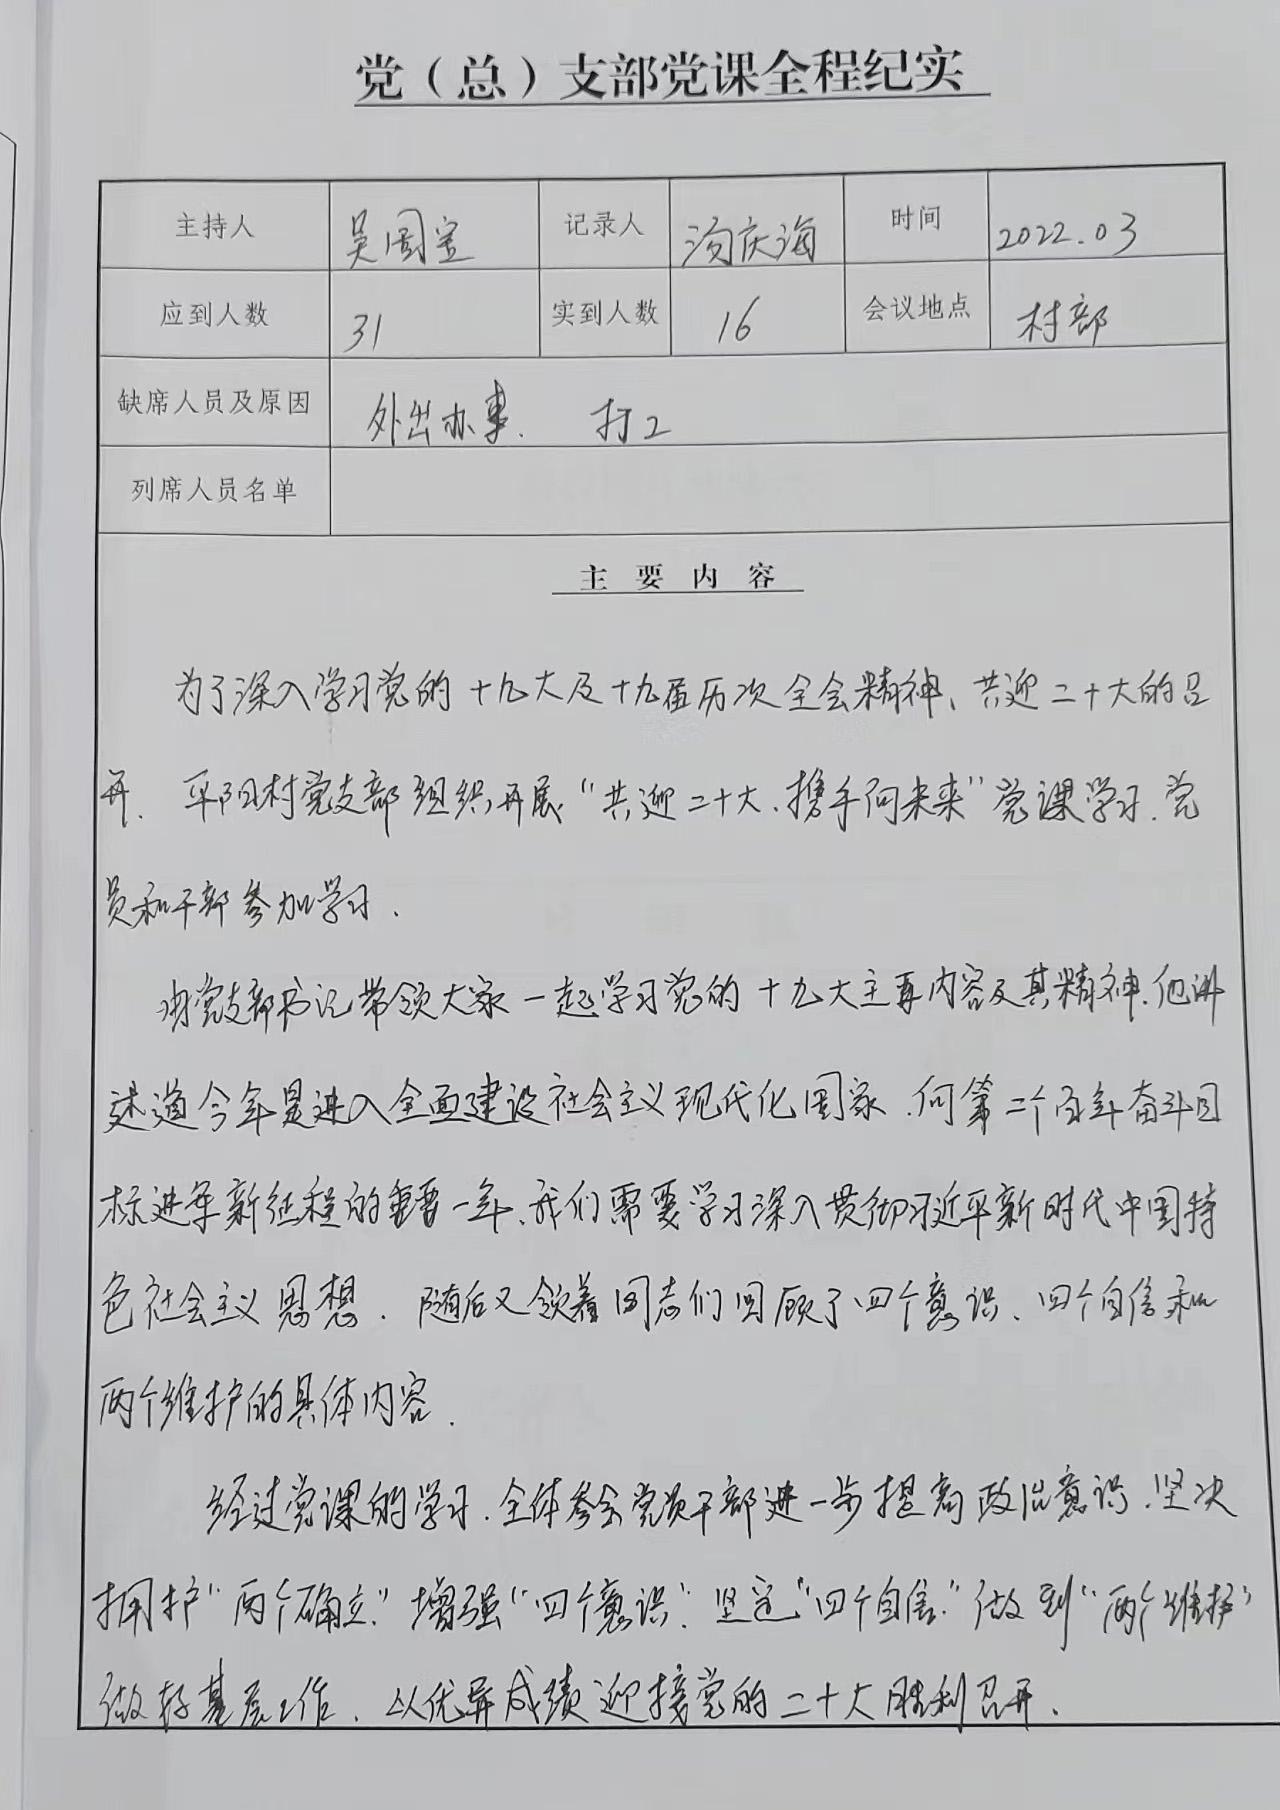 党（总）支部党课全程纪实
主持人 吴国宝 记录人 汤庆海 时间 2022.03
应到人数 31 实到人数 16 会议地点 村部
缺席人员及原因 外出办事. 打工
列席人员名单
主要内容
为了深入学习党的十九大及十九届历次全会精神、共迎二十大的召
开. 平阳村党支部组织开展“共迎二十大、携手向未来”党课学习. 党
员和干部参加学习.
由党支部书记带领大家一起学习党的十九大主要内容及其精神. 他讲
述道今年是进入全面建设社会主义现代化国家. 向第二个百年奋斗目
标进军新征程的重要一年、我们需要学习深入贯彻习近平新时代中国特
色社会主义思想. 随后又领着同志们回顾了四个意识、四个自信和
两个维护的具体内容.
经过党课的学习. 全体参会党员干部进一步提高政治意识. 坚决
拥护“两个确立”增强“四个意识”. 坚定“四个自信”做到“两个维护”
做好基层工作. 以优异成绩迎接党的二十大胜利召开.